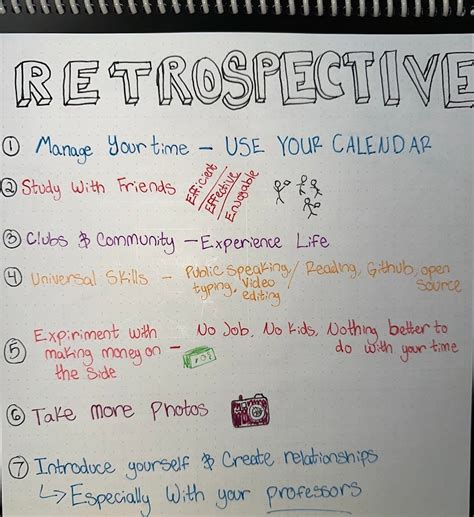 RETROSPECTIVE
① Manage Your time – USE YOUR CALENDAR
② Study With Friends
Efficient
Effective
Enjoyable
③ Clubs & Community – Experience Life
④ Universal Skills – Public Speaking / Reading, Github, open
typing, Video source
editing
⑤ Expiriment with No Job, No Kids, Nothing better to
making money on – do with your time
the Side
⑥ Take more Photos
⑦ Introduce yourself & Create relationships
↳ Especially With your professors